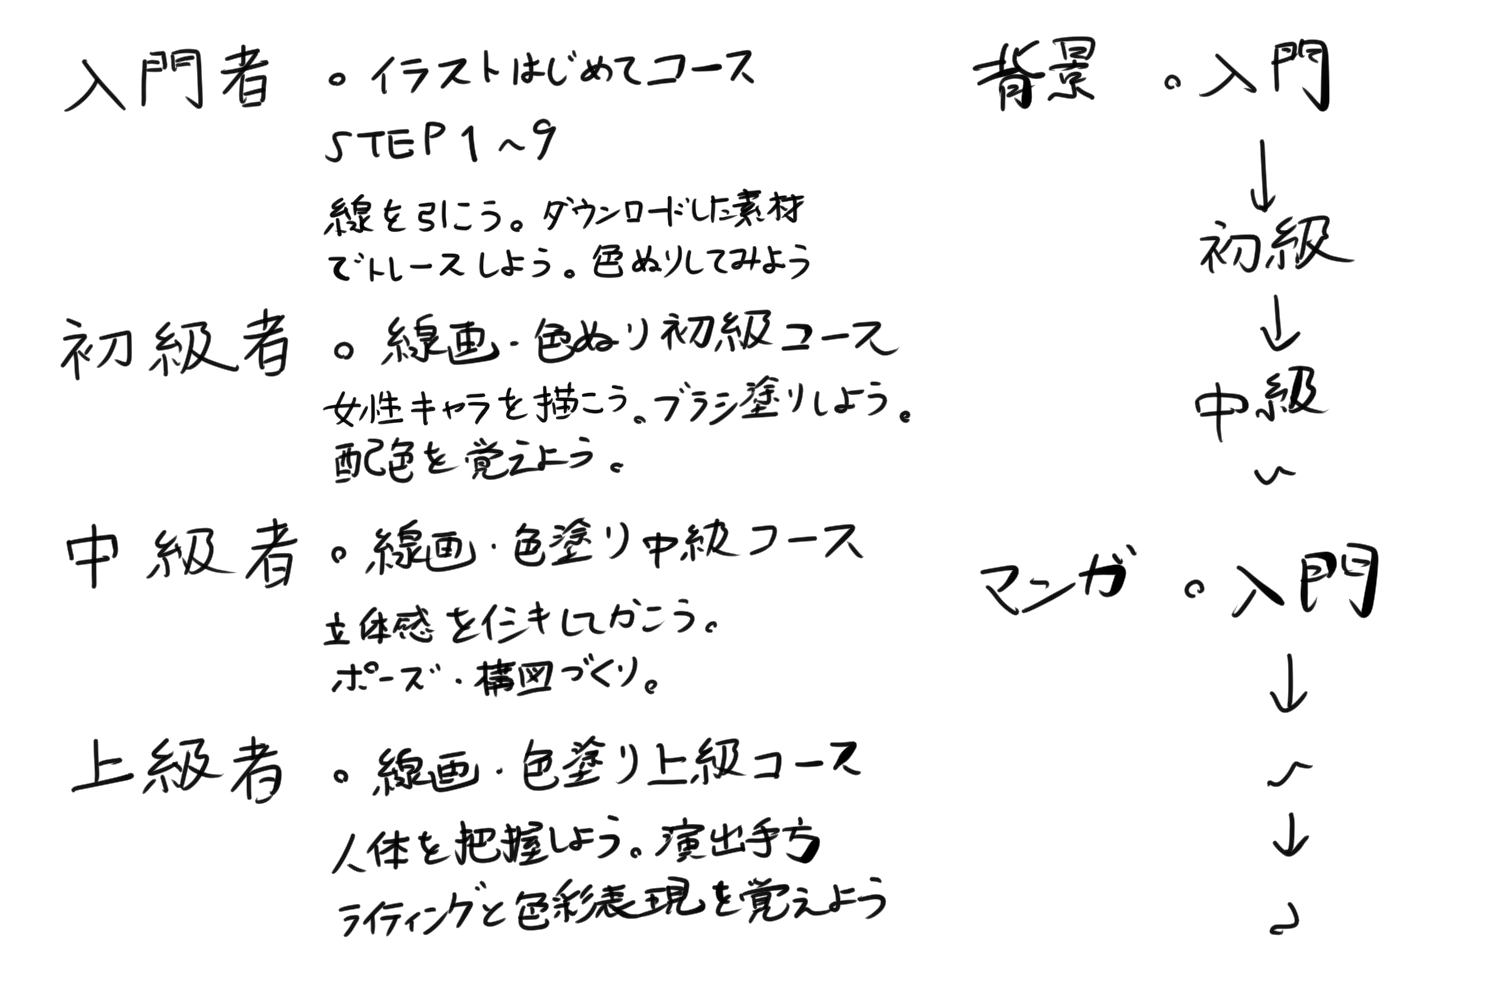 入門者 。イラストはじめてコース
STEP1~9
線を引こう。ダウンロードした素材
でトレースしよう。色ぬりしてみよう
初級者 。線画・色ぬり初級コース
女性キャラを描こう。ブラシ塗りしよう。
配色を覚えよう。
中級者 。線画・色塗り中級コース
立体感をイシキしてかこう。
ポーズ・構図づくり。
上級者 。線画・色塗り上級コース
人体を把握しよう。演出手方
ライティングと色彩表現を覚えよう
背景 。入門
↓
初級
↓
中級
~
マンガ 。入門
↓
~
↓